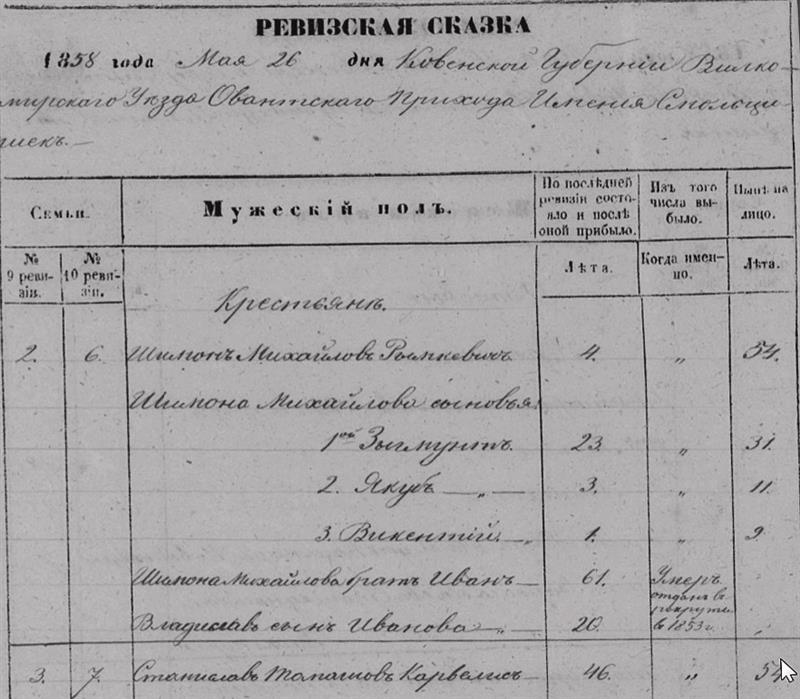 РЕВИЗСКАЯ СКАЗКА
1858 года Мая 26 дня Ковенской Губерніи Вилко-
мирскаго Уѣзда Овантскаго Прихода Имѣнія
Семьи. Мужескій полъ. По послѣдней ревизіи состо-яло и послѣ оной прибыло. Изъ того числа вы-было. Нынѣ на лицо.
№ 9 реви-зіи. № 10 реви-зіи. Лѣта. Когда имен-но. Лѣта.
Крестьянъ.
2. 6. Шимонъ Михайловъ Рымкевичъ 4. „ 54.
Шимона Михайлова сыновья:
1ой Зыгмунтъ. 23. „ 31.
2. Якубъ — „ — 3. „ 11.
3. Викентій. — „ 1. „ 9.
Шимона Михайлова братъ Иванъ — 61. Умеръ
Владиславъ сынъ Иванова — „ 20. отданъ въ рекруты въ 1853 г. „
3. 7. Станиславъ Карвелисъ — 46. „